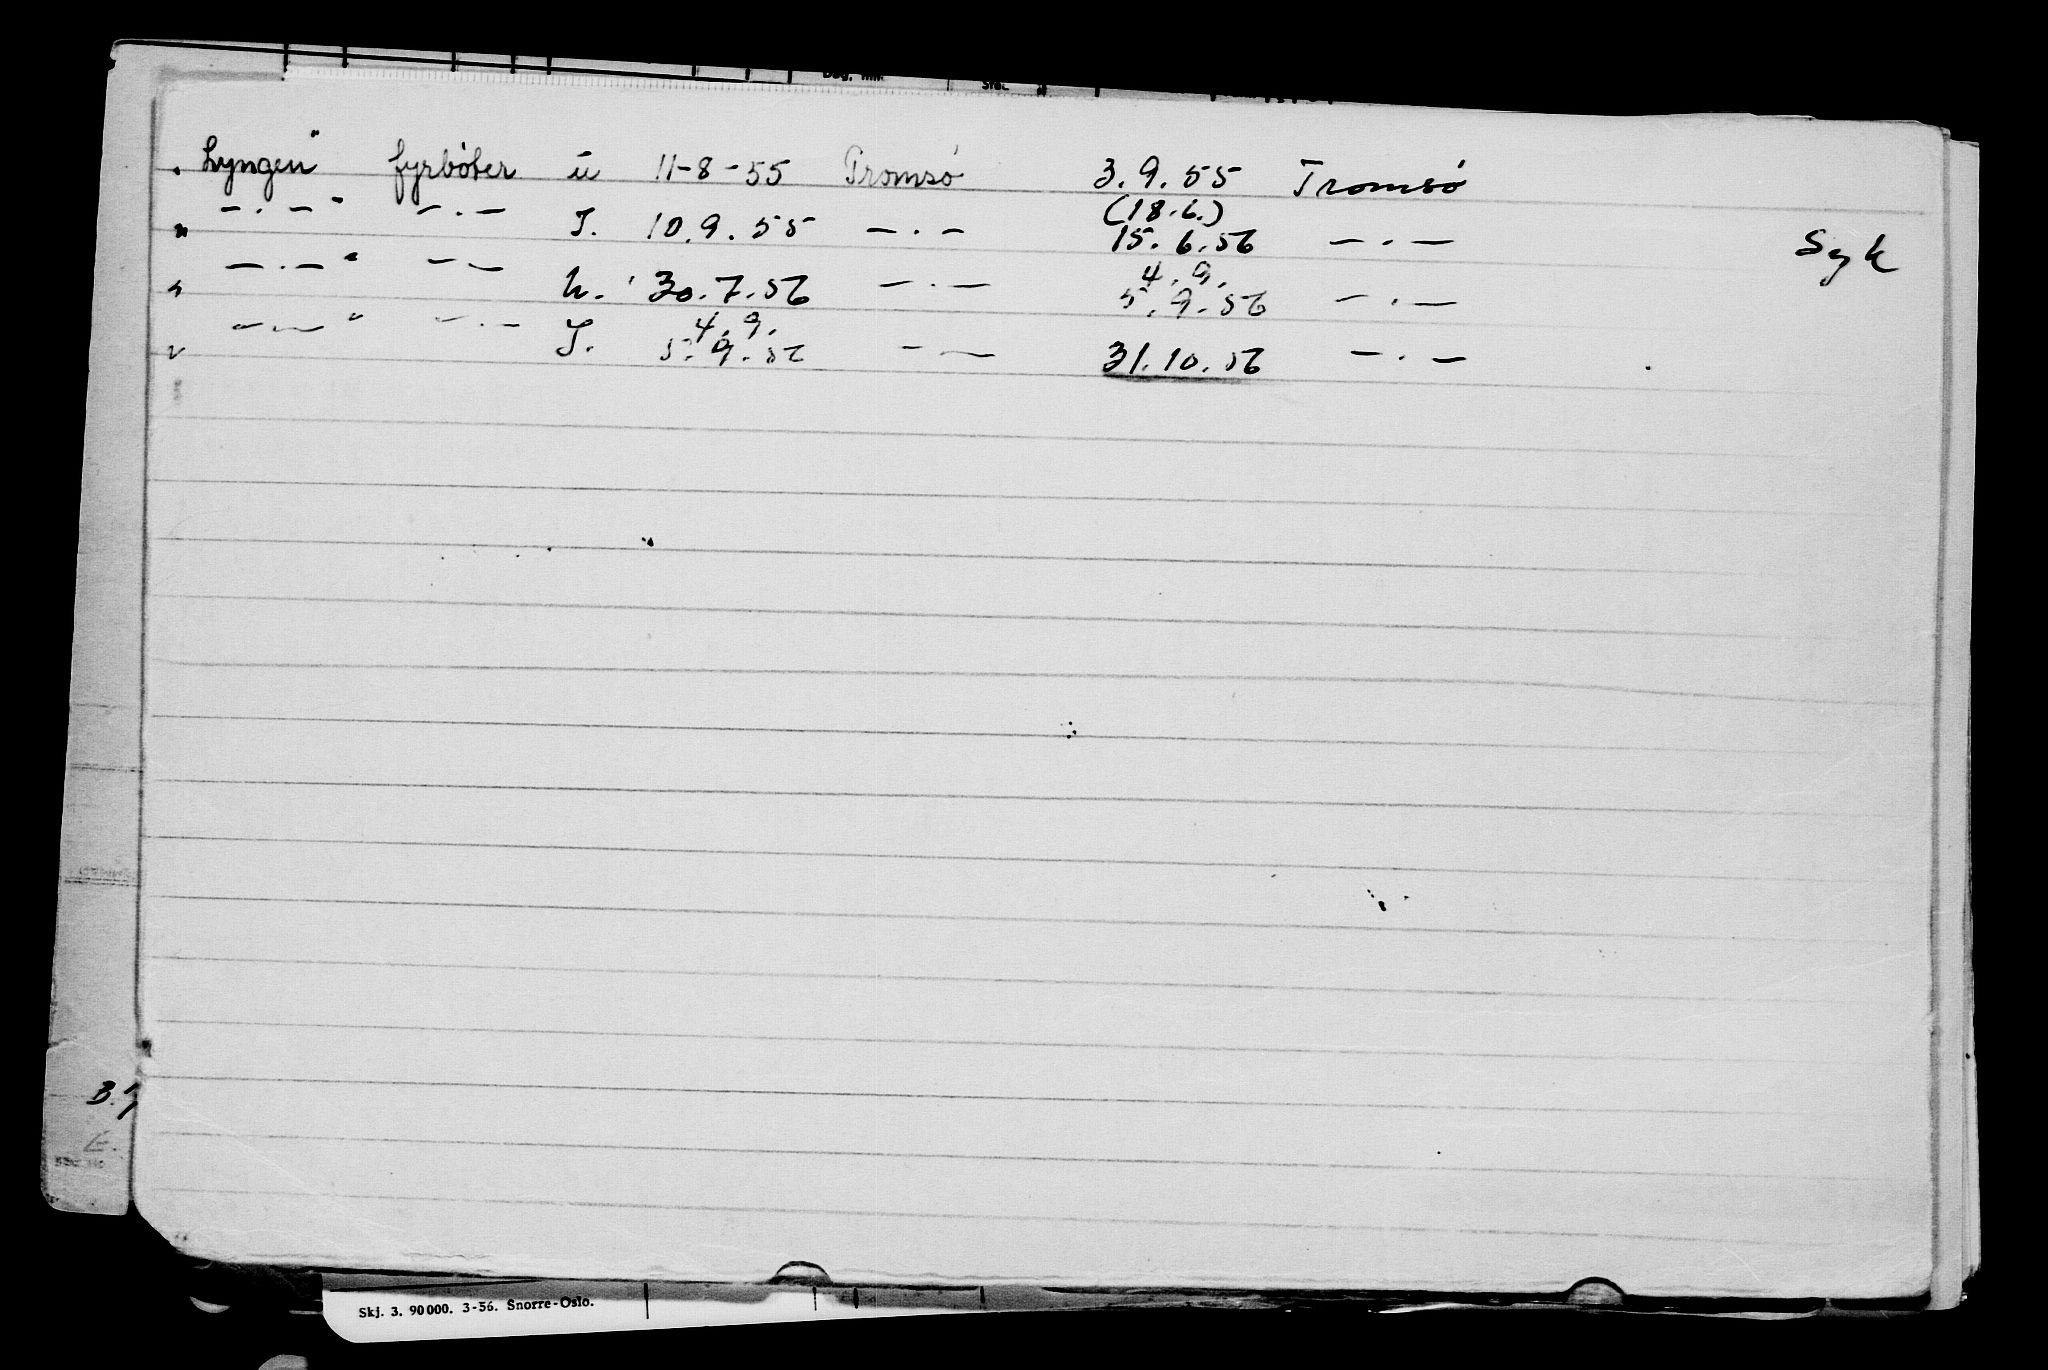 „ Lyngen" fyrbøter u 11-8-55 Tromsø 3.9.55 Tromsø
„ -.-" -.- I. 10.9.55 -.- (18.6.) 15.6.56 -.- Syk
„ -.-" -- U. 30.7.56 -.- 4.9. 5.9.56 -.-
„ -.-" -.- I. 4.9. 5.9.56 -.- 31.10.56 -.-
B.
Skj. 3. 90000. 3-56. Snorre-Oslo.